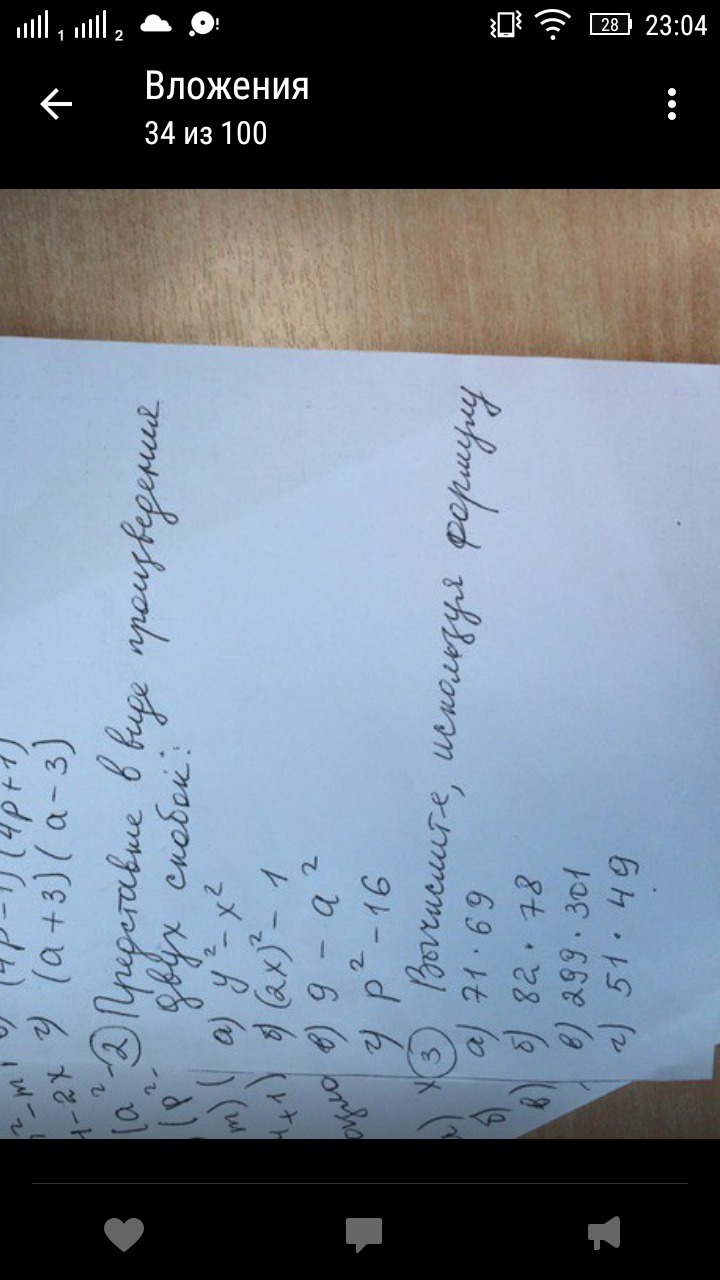 1 2 28 23:04
Вложения
34 из 100
(4p-1)(4p+1)
г) (a+3)(a-3)
② Представьте в виде произведения
двух скобок:
а) y²-x²
б) (2x)²-1
в) 9-a²
г) p²-16
③ Вычислите, используя формулу
а) 71·69
б) 82·78
в) 299·301
г) 51·49